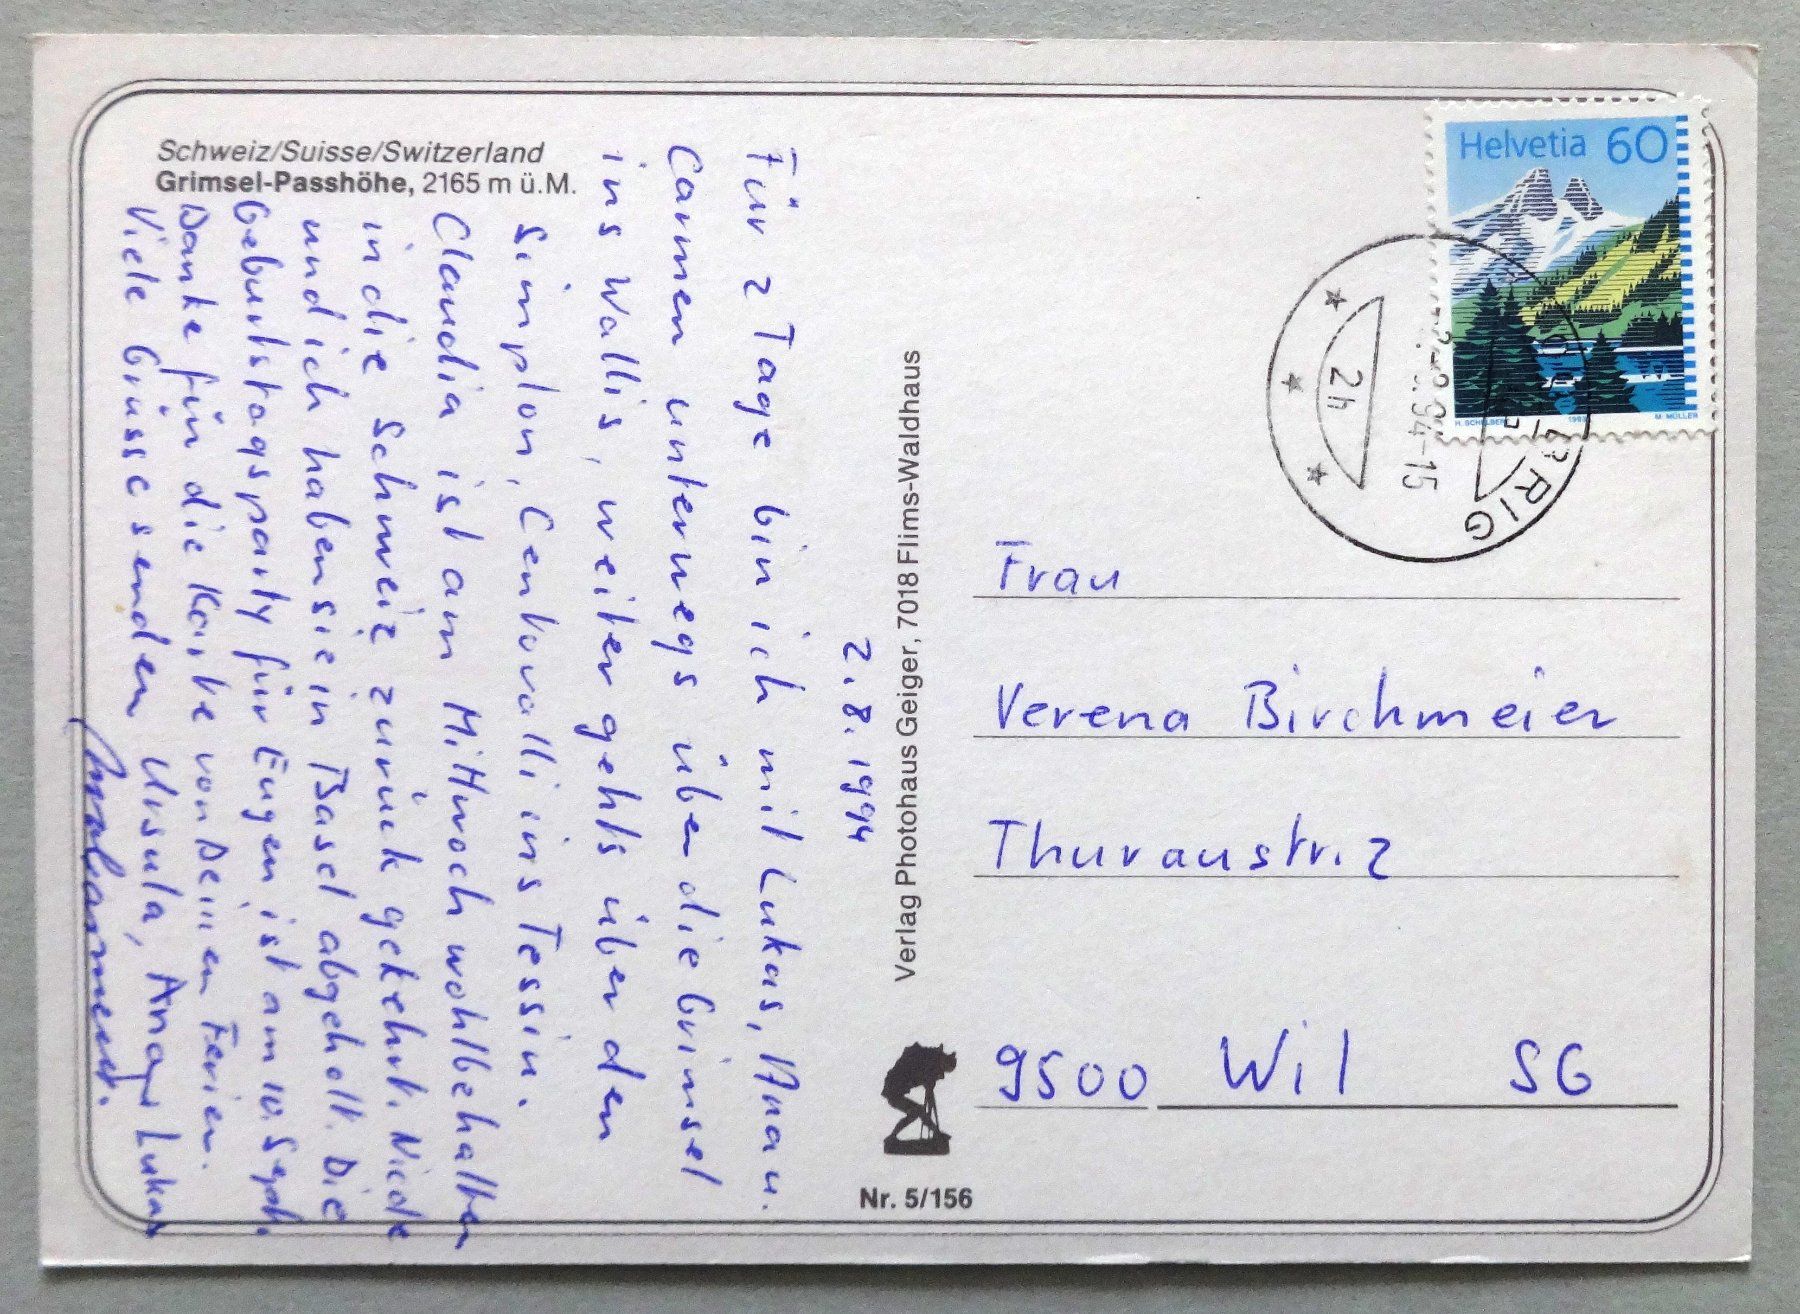 Schweiz/Suisse/Switzerland
Grimsel-Passhöhe, 2165 m ü.M.
2.8.1994
Für 2 Tage bin ich mit Lukas, Anan.
Carmen unterwegs über die Grimsel
ins Wallis, weiter gehts über den
Simplon, Centovalli ins Tessin.
Claudia ist am Mittwoch wohlbehalten
in die Schweiz zurück gekehrt. Nicole
und ich haben sie in Basel abgeholt. Die
Geburtstagsparty für Eugen ist am 10. Sept.
Danke für die Karte von Deinen Ferien.
Viele Grüsse senden Ursula, Lukas
Verlag Photohaus Geiger, 7018 Flims-Waldhaus
Nr. 5/156
Helvetia 60
M. MÜLLER
BRIG
24
94-15
Frau
Verena Birchmeier
Thuraustr. 2
9500 Wil SG